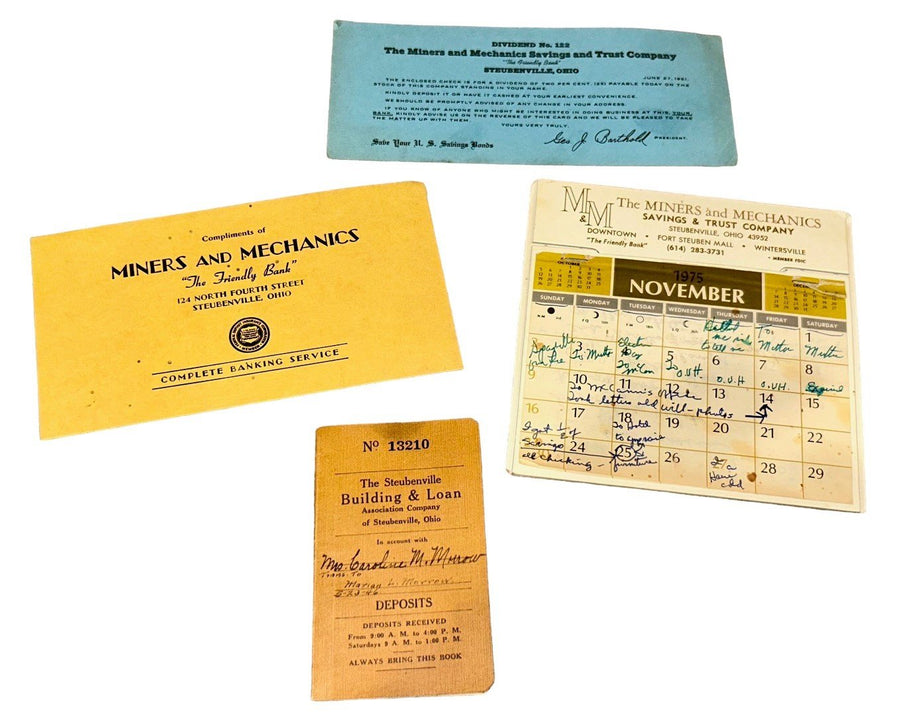 DIVIDEND No. 122
The Miners and Mechanics Savings and Trust Company
"The Friendly Bank"
STEUBENVILLE, OHIO
JUNE 27, 1951.
THE ENCLOSED CHECK IS FOR A DIVIDEND OF TWO PER CENT (2%) PAYABLE TODAY ON THE
STOCK OF THIS COMPANY STANDING IN YOUR NAME.
KINDLY DEPOSIT IT OR HAVE IT CASHED AT YOUR EARLIEST CONVENIENCE.
WE SHOULD BE PROMPTLY ADVISED OF ANY CHANGE IN YOUR ADDRESS.
IF YOU KNOW OF ANYONE WHO MIGHT BE INTERESTED IN DOING BUSINESS AT THIS, YOUR
BANK, KINDLY ADVISE US ON THE REVERSE OF THIS CARD AND WE WILL BE PLEASED TO TAKE
THE MATTER UP WITH THEM.
YOURS VERY TRULY,
Geo J. Barthold PRESIDENT.
Save Your U. S. Savings Bonds
Compliments of
MINERS AND MECHANICS
"The Friendly Bank"
124 NORTH FOURTH STREET
STEUBENVILLE, OHIO
COMPLETE BANKING SERVICE
M&M The MINERS and MECHANICS
SAVINGS & TRUST COMPANY
STEUBENVILLE, OHIO 43952
DOWNTOWN • FORT STEUBEN MALL • WINTERSVILLE
"The Friendly Bank" (614) 283-3731
• MEMBER FDIC
OCTOBER 1975
NOVEMBER
SUNDAY MONDAY TUESDAY WEDNESDAY THURSDAY FRIDAY SATURDAY
Called To 1
me Mutter Mutter
3 Election 5 6 7 8
To Day To
O.V.H. O.V.H O.V.H.
9 10 11 12 13 14 15
To McCann's office
Took letters old will - photos
16 17 18 19 20 21 22
I got 1/2 of To Hold
Savings to appraise
24 25 furniture 26 28 29
all checking -
Have
cold
No 13210
The Steubenville
Building & Loan
Association Company
of Steubenville, Ohio
In account with
Mrs. Caroline M. Morrow
Trans To
Marian L. Morrow
DEPOSITS
DEPOSITS RECEIVED
From 9:00 A. M. to 4:00 P. M.
Saturdays 9 A. M. to 1:00 P. M.
ALWAYS BRING THIS BOOK